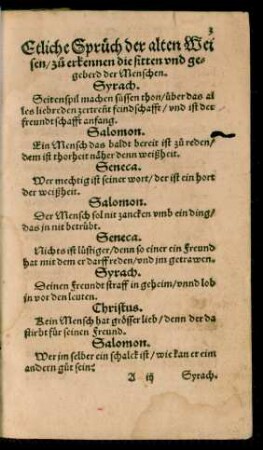 3
Etliche Sprüch der alten Wei
sen/ zů erkennen die sitten vnd ge-
geberd der Menschen.
Syrach.
Seitenspil machen süssen thon/ über das al
les liebreden zertreñt feindschafft/ vnd ist der
freundtschafft anfang.
Salomon.
Ein Mensch das baldt bereit ist zů reden/
dem ist thorheit näher denn weißheit.
Seneca.
Wer mechtig ist seiner wort/ der ist ein hort
der weißheit.
Salomon.
Der Mensch sol nit zancken vmb ein ding/
das jn nit betrübt.
Seneca.
Nichts ist lüstiger/ denn so einer ein Freund
hat mit dem er darff reden/ vnd jm getrawen.
Syrach.
Deinen Freundt straff in geheim/ vnnd lob
jn vor den leuten.
Christus.
Kein Mensch hat grösser lieb/ denn der da
stirbt für seinen Freund.
Salomon.
Wer jm selber ein schalck ist/ wie kan er eim
andern gůt sein?
A iij Syrach.